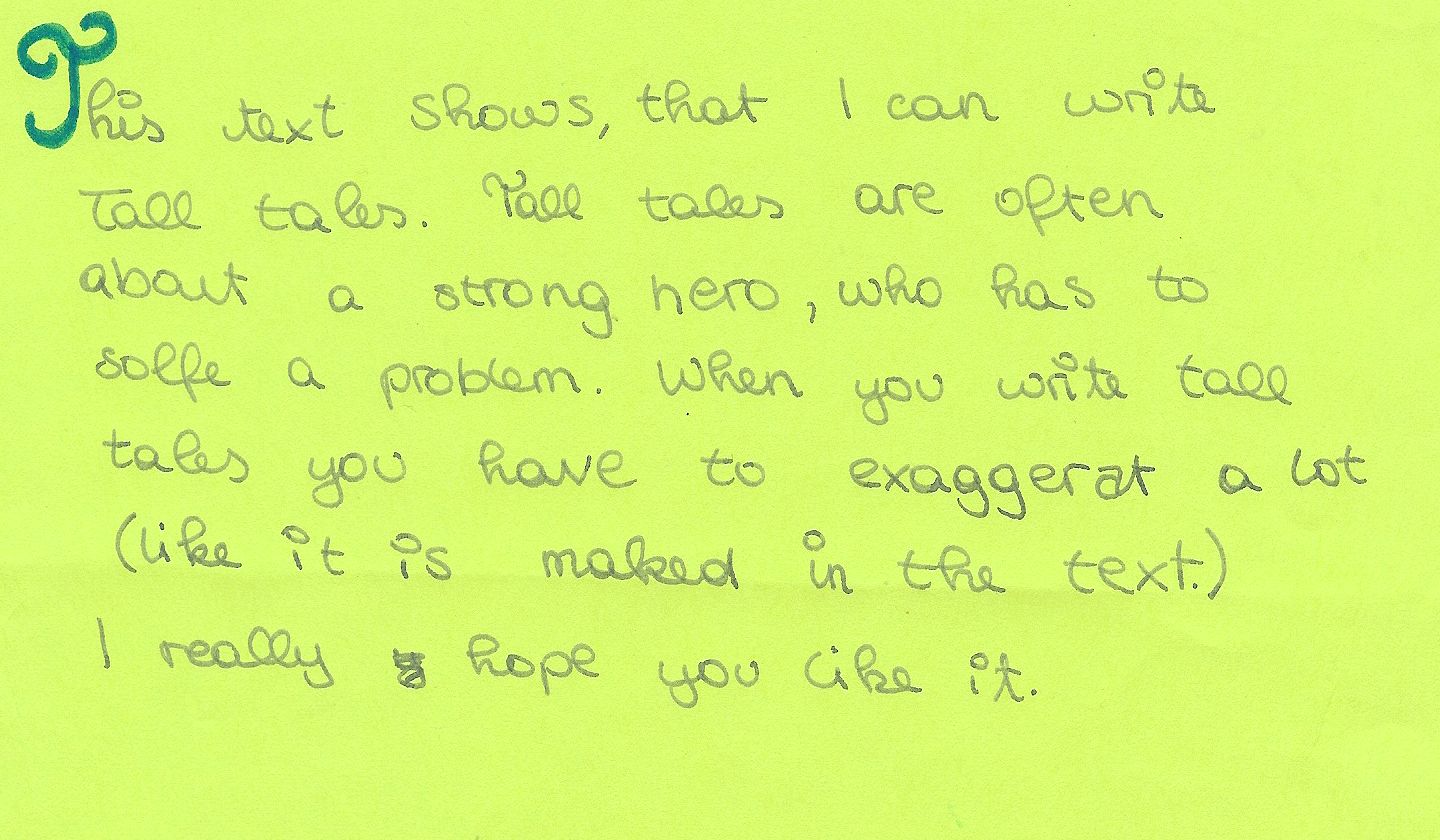 This text shows, that I can write
Tall tales. Tall tales are often
about a strong hero, who has to
solfe a problem. When you write tall
tales you have to exaggerat a lot
(like it is maked in the text.)
I really hope you like it.